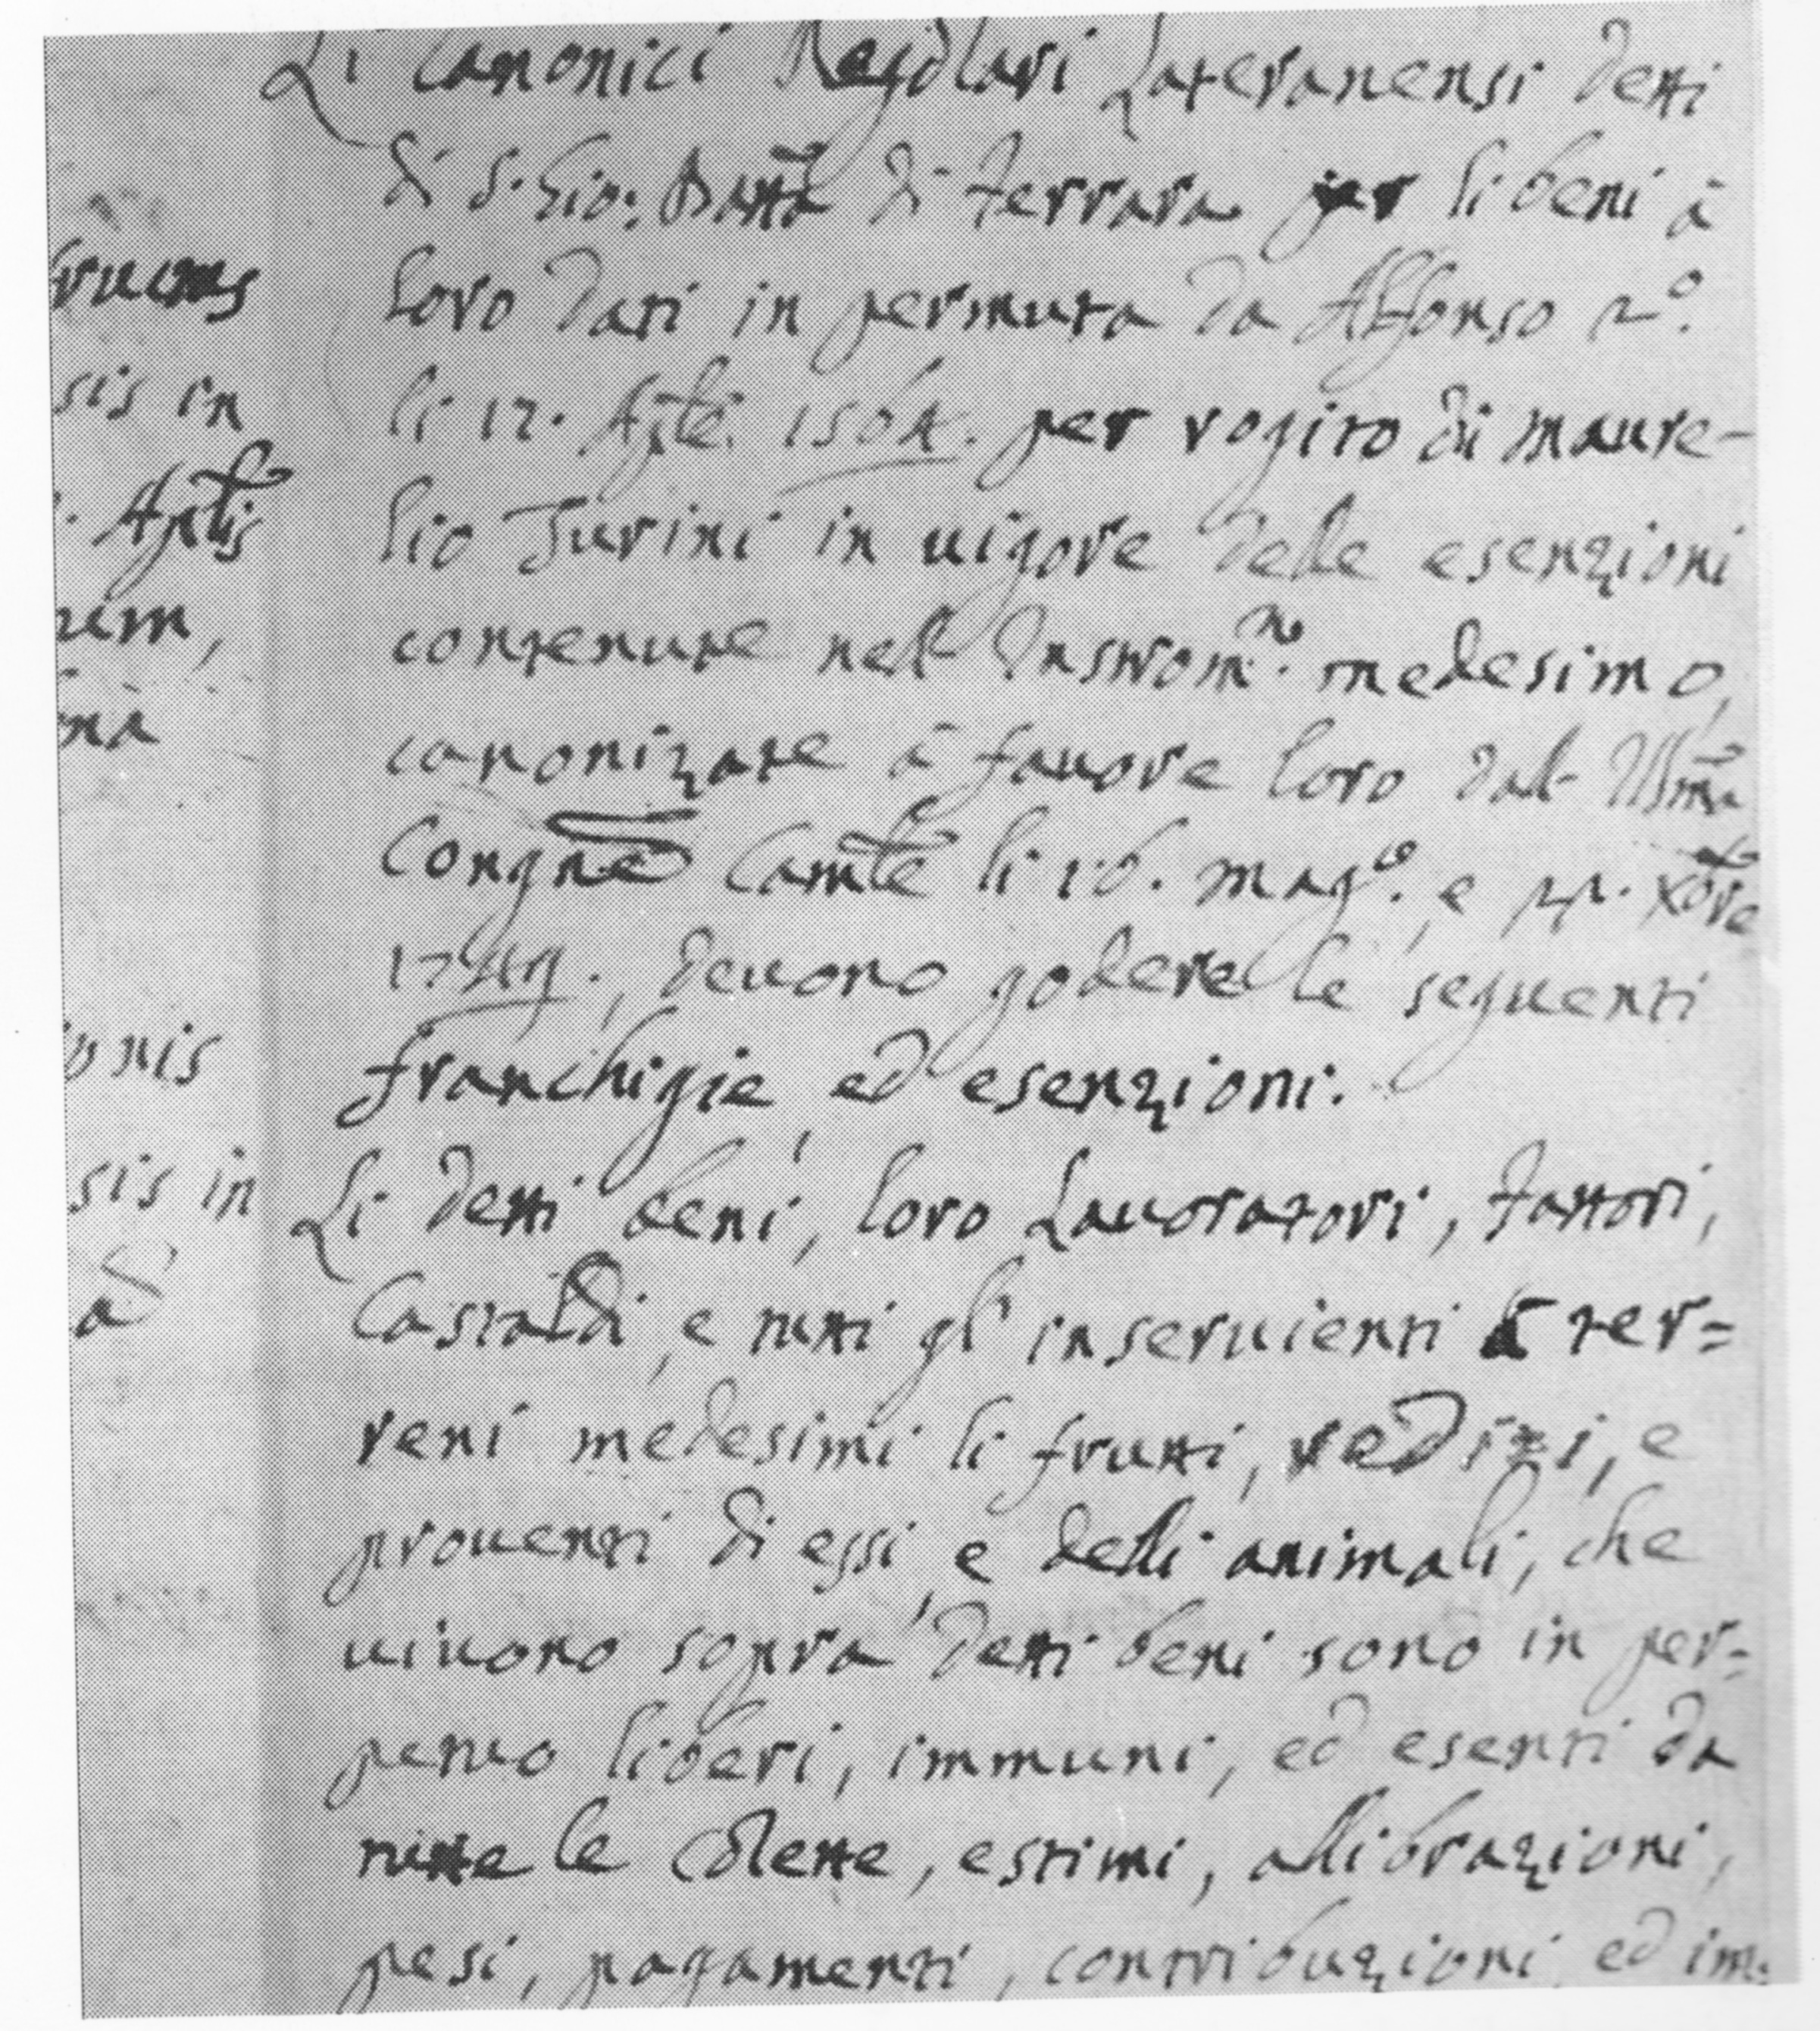 Li Canonici Regolari Lateranensi detti
di S. Gio: Batta di Ferrara per li beni à
loro dati in permuta da Alfonso 2.º
li 12. Aple. 1564. per rogito di Maure-
lio Turini in uigore delle esenzioni
contenute nell' Instrom.to medesimo,
canonizate à fauore loro dall' Illma
Congne Camle li 16. Mag.o, e 22. Xbre
1744., deuono godere le seguenti
franchigie ed esenzioni.
Li detti beni, loro Lauoratori, Fattori,
Castaldi, e tutti gl' inseruienti à ter=
reni medesimi li frutti, redditi, e
prouenti di essi, e delli animali, che
uiuono sopra detti beni sono in per=
petuo liberi, immuni, ed esenti da
tutte le Collette, estimi, allibrazioni,
pesi, pagamenti, contribuzioni ed im:
sis in
Aplis
rem,
na
onis
sis in
ad